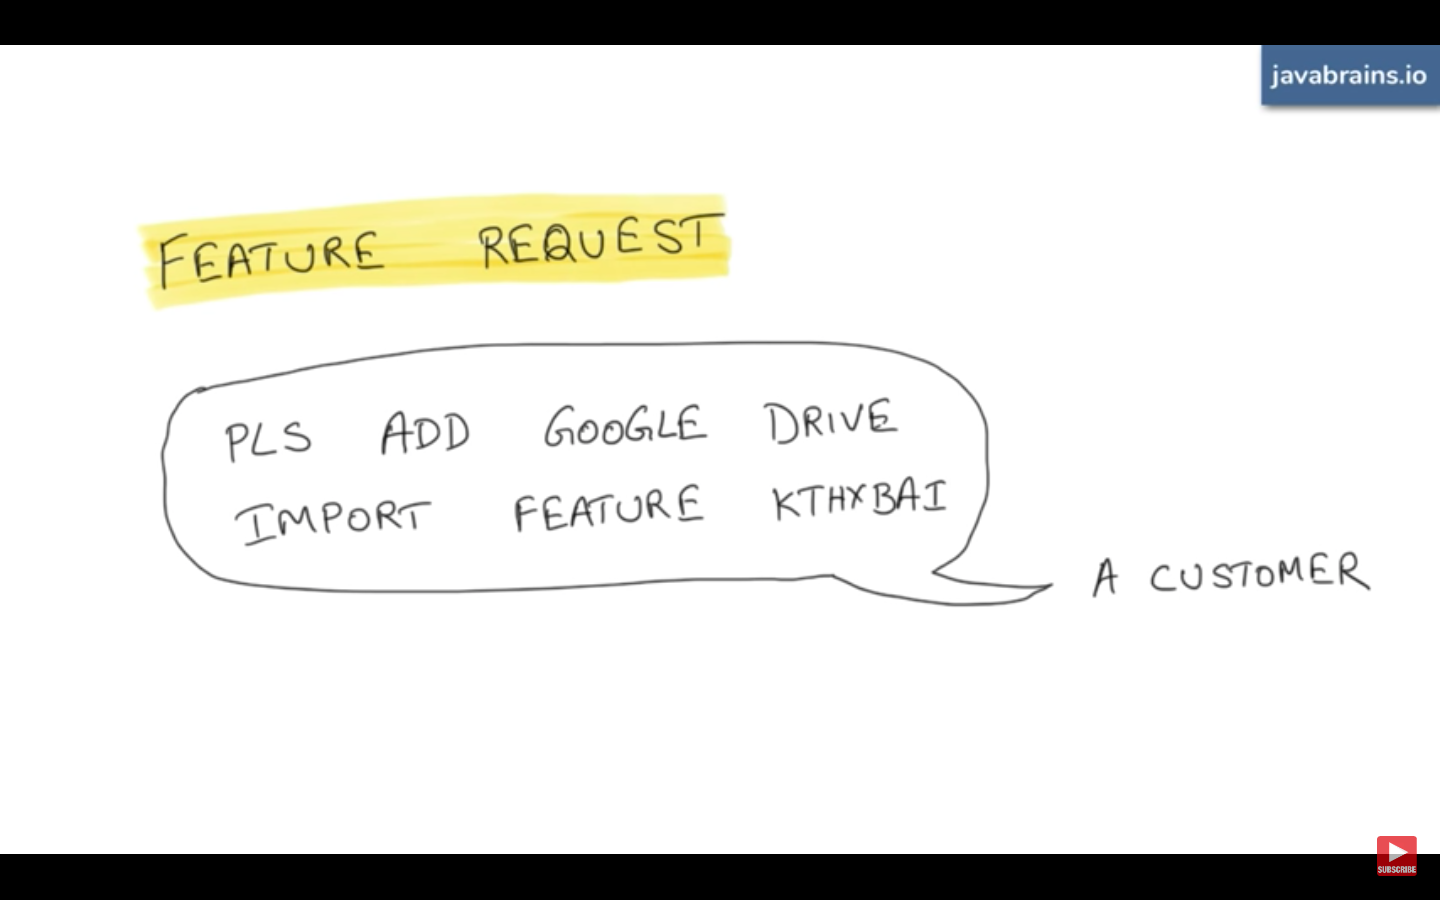 javabrains.io
FEATURE REQUEST
PLS ADD GOOGLE DRIVE
IMPORT FEATURE KTHXBAI
A CUSTOMER
SUBSCRIBE